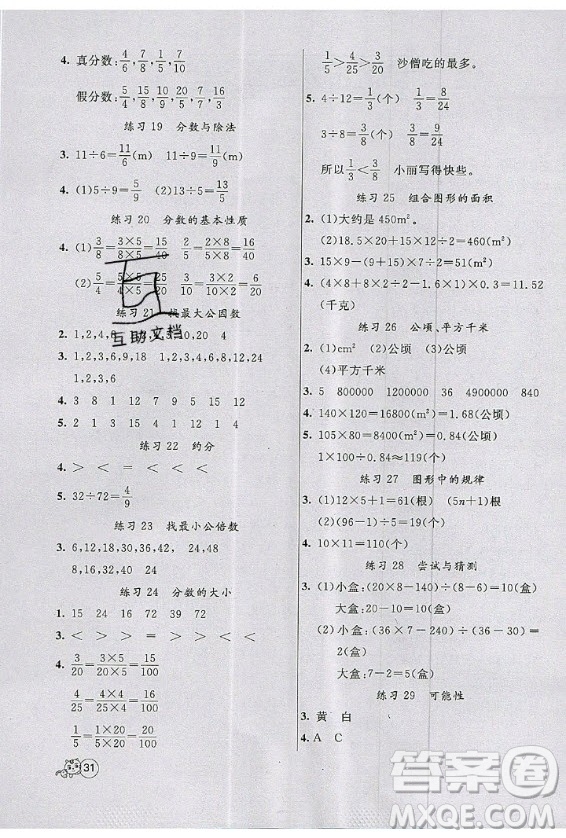 4. 真分数: 4/6, 7/8, 1/5, 7/8
假分数: 5/4, 15/8, 10/9, 20/5, 16/7, 8/8
练习 19 分数与除法
3. 11÷6=11/6(m) 11÷6=11/6(m)
4. (1)5÷9=5/9 (2)13÷5=13/5
练习 20 分数的基本性质
4. (1)3/8=3×5/8×5=15/40 2/5=2×8/5×8=16/40
(2)5/4=5×5/4×5=25/20 3/10=3×2/10×2=6/20
练习 21 找最大公因数
2. 1,2,4,8 1,2,4,5,10,20 4
3. 1,2,3,6,9,18 1,2,3,4,6,8,12,24
1,2,3,6
4. 3 1 4 1 8 12 4 13
5. 7 2 5 3 9 7 1 1
练习 22 约分
4. > < = = > <
5. 32÷72=4/9
练习 23 找最小公倍数
3. 6,12,18,30,36,42 24,48
8,16,20,32,36,40 24
练习 24 分数的大小
1. 15 24 16 72 39 72
3. > < > < > < > <
4. 3/20=3×5/20×5=15/100
4/25=4×4/25×4=16/100
1/5=1×20/5×20=20/100
31
1/5>4/25>3/20 沙僧吃的最多。
5. 4÷12=1/3(个) 1/3=8/24
3÷8=3/8(个) 3/8=9/24
所以1/3<3/8 小丽写得快些。
练习 25 组合图形的面积
2. (1)大约是 450m²。
(2)18.5×20+15×12÷2=460(m²)
3. 15×9-(9+15)×1÷2=123(m²)
4. (4×8+4×2÷2-1.6×1)×0.3=11.52
(千克)
练习 26 公顷、平方千米
2. (1)cm² (2)公顷 (3)公顷
(4)平方千米
3. 5 800000 1200000 36 4800 840
4. 140×120=16800(m²)=1.68(公顷)
5. 105×80=8400(m²)=0.84(公顷)
1×100×0.84=84(个)
练习 27 图形中的规律
3. (1)12×5+1=61(根) (5n+1)(根)
(2)(96-1)÷5=19(个)
4. 10×11=110(个)
练习 28 尝试与猜测
3. (1)小盒:(20×8-140)÷(8-6)=10(盒)
大盒:20-10=10(盒)
(2)小盒:(36×7-240)÷(36-30)
=2(盒)
大盒:7-2=5(盒)
练习 29 可能性
3. 黄 白
4. A C
互助文档
答案圈
MXQE.COM